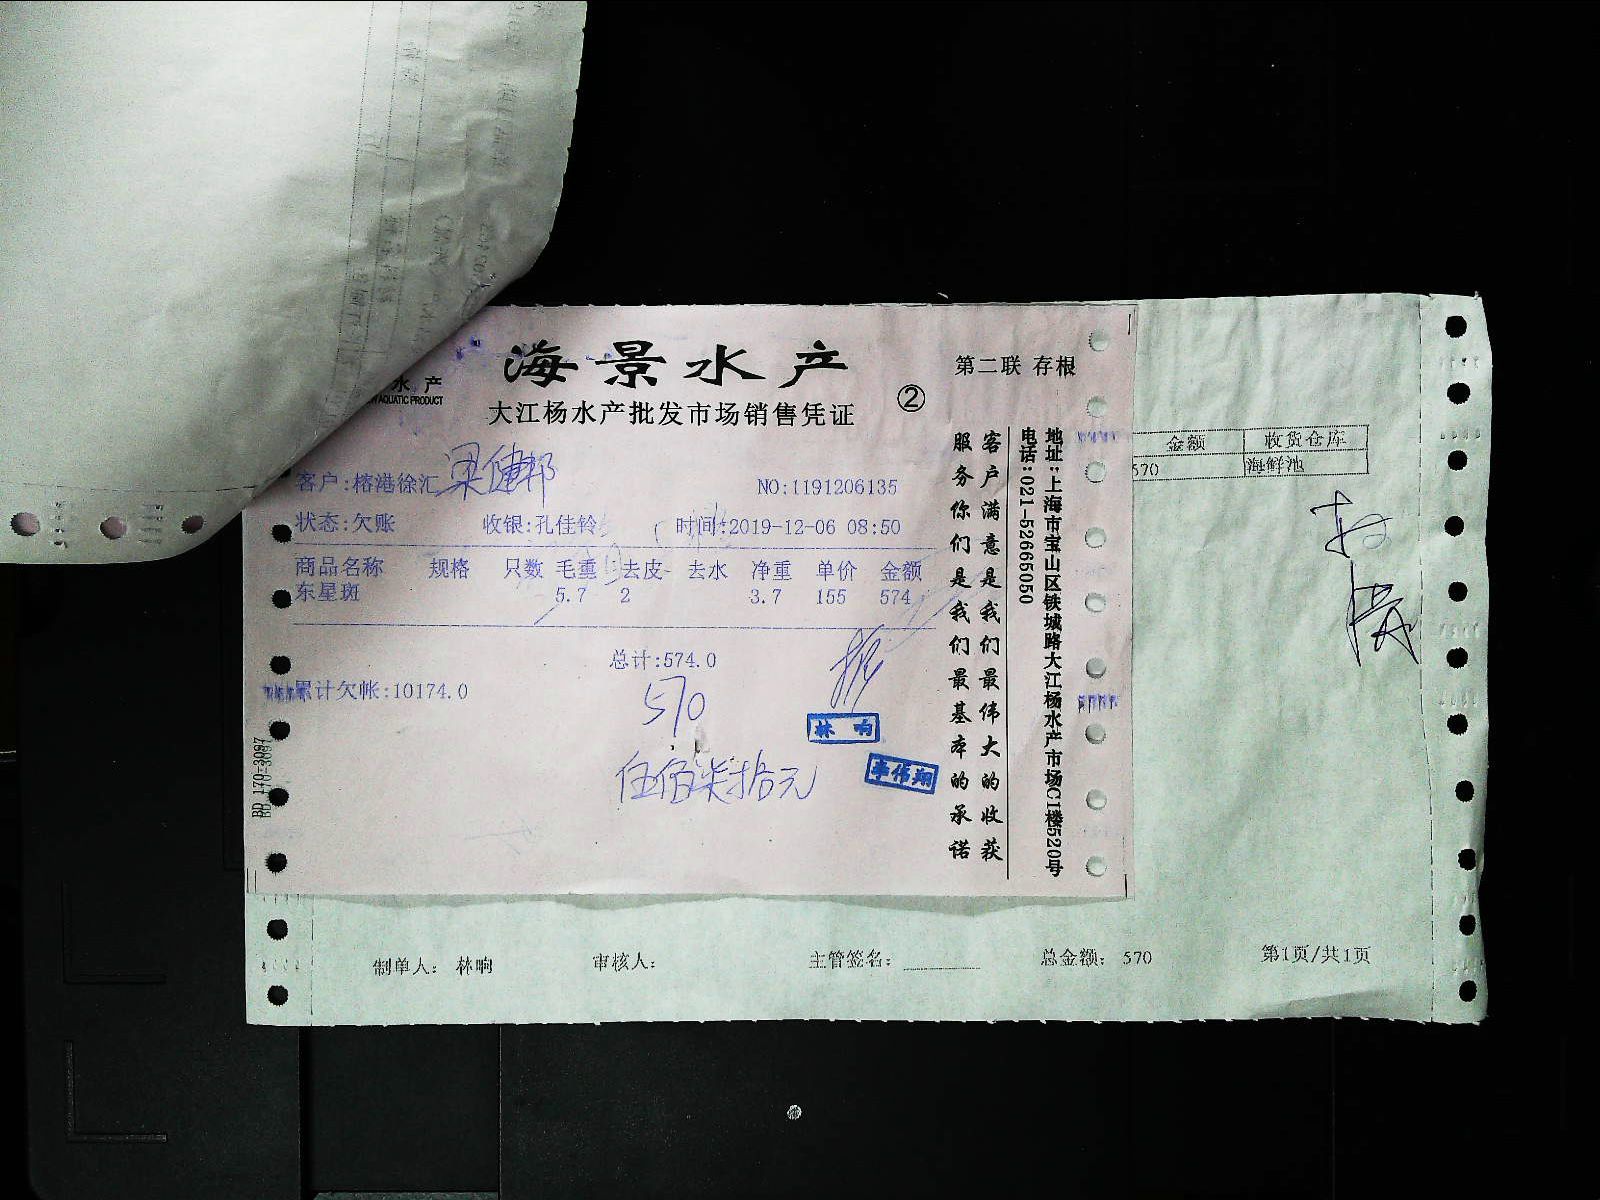 海景水产
第二联 存根
水产
AQUATIC PRODUCT
大江杨水产批发市场销售凭证
②
客户:榕港徐汇 梁健邦
NO:1191206135
状态:欠账 收银:孔佳铃 时间:2019-12-06 08:50
商品名称 规格 只数 毛重 去皮 去水 净重 单价 金额
东星斑 5.7 2 3.7 155 574
总计:574.0
累计欠帐:10174.0
570
伍佰柒拾元
林响
李伟翔
客户满意是我们最伟大的收获
服务你们是我们最基本的承诺
地址:上海市宝山区铁城路大江杨水产市场C1楼520号
电话:021-52665050
BD 170-3087
金额 收货仓库
570 海鲜池
制单人: 林响 审核人: 主管签名: 总金额: 570 第1页/共1页